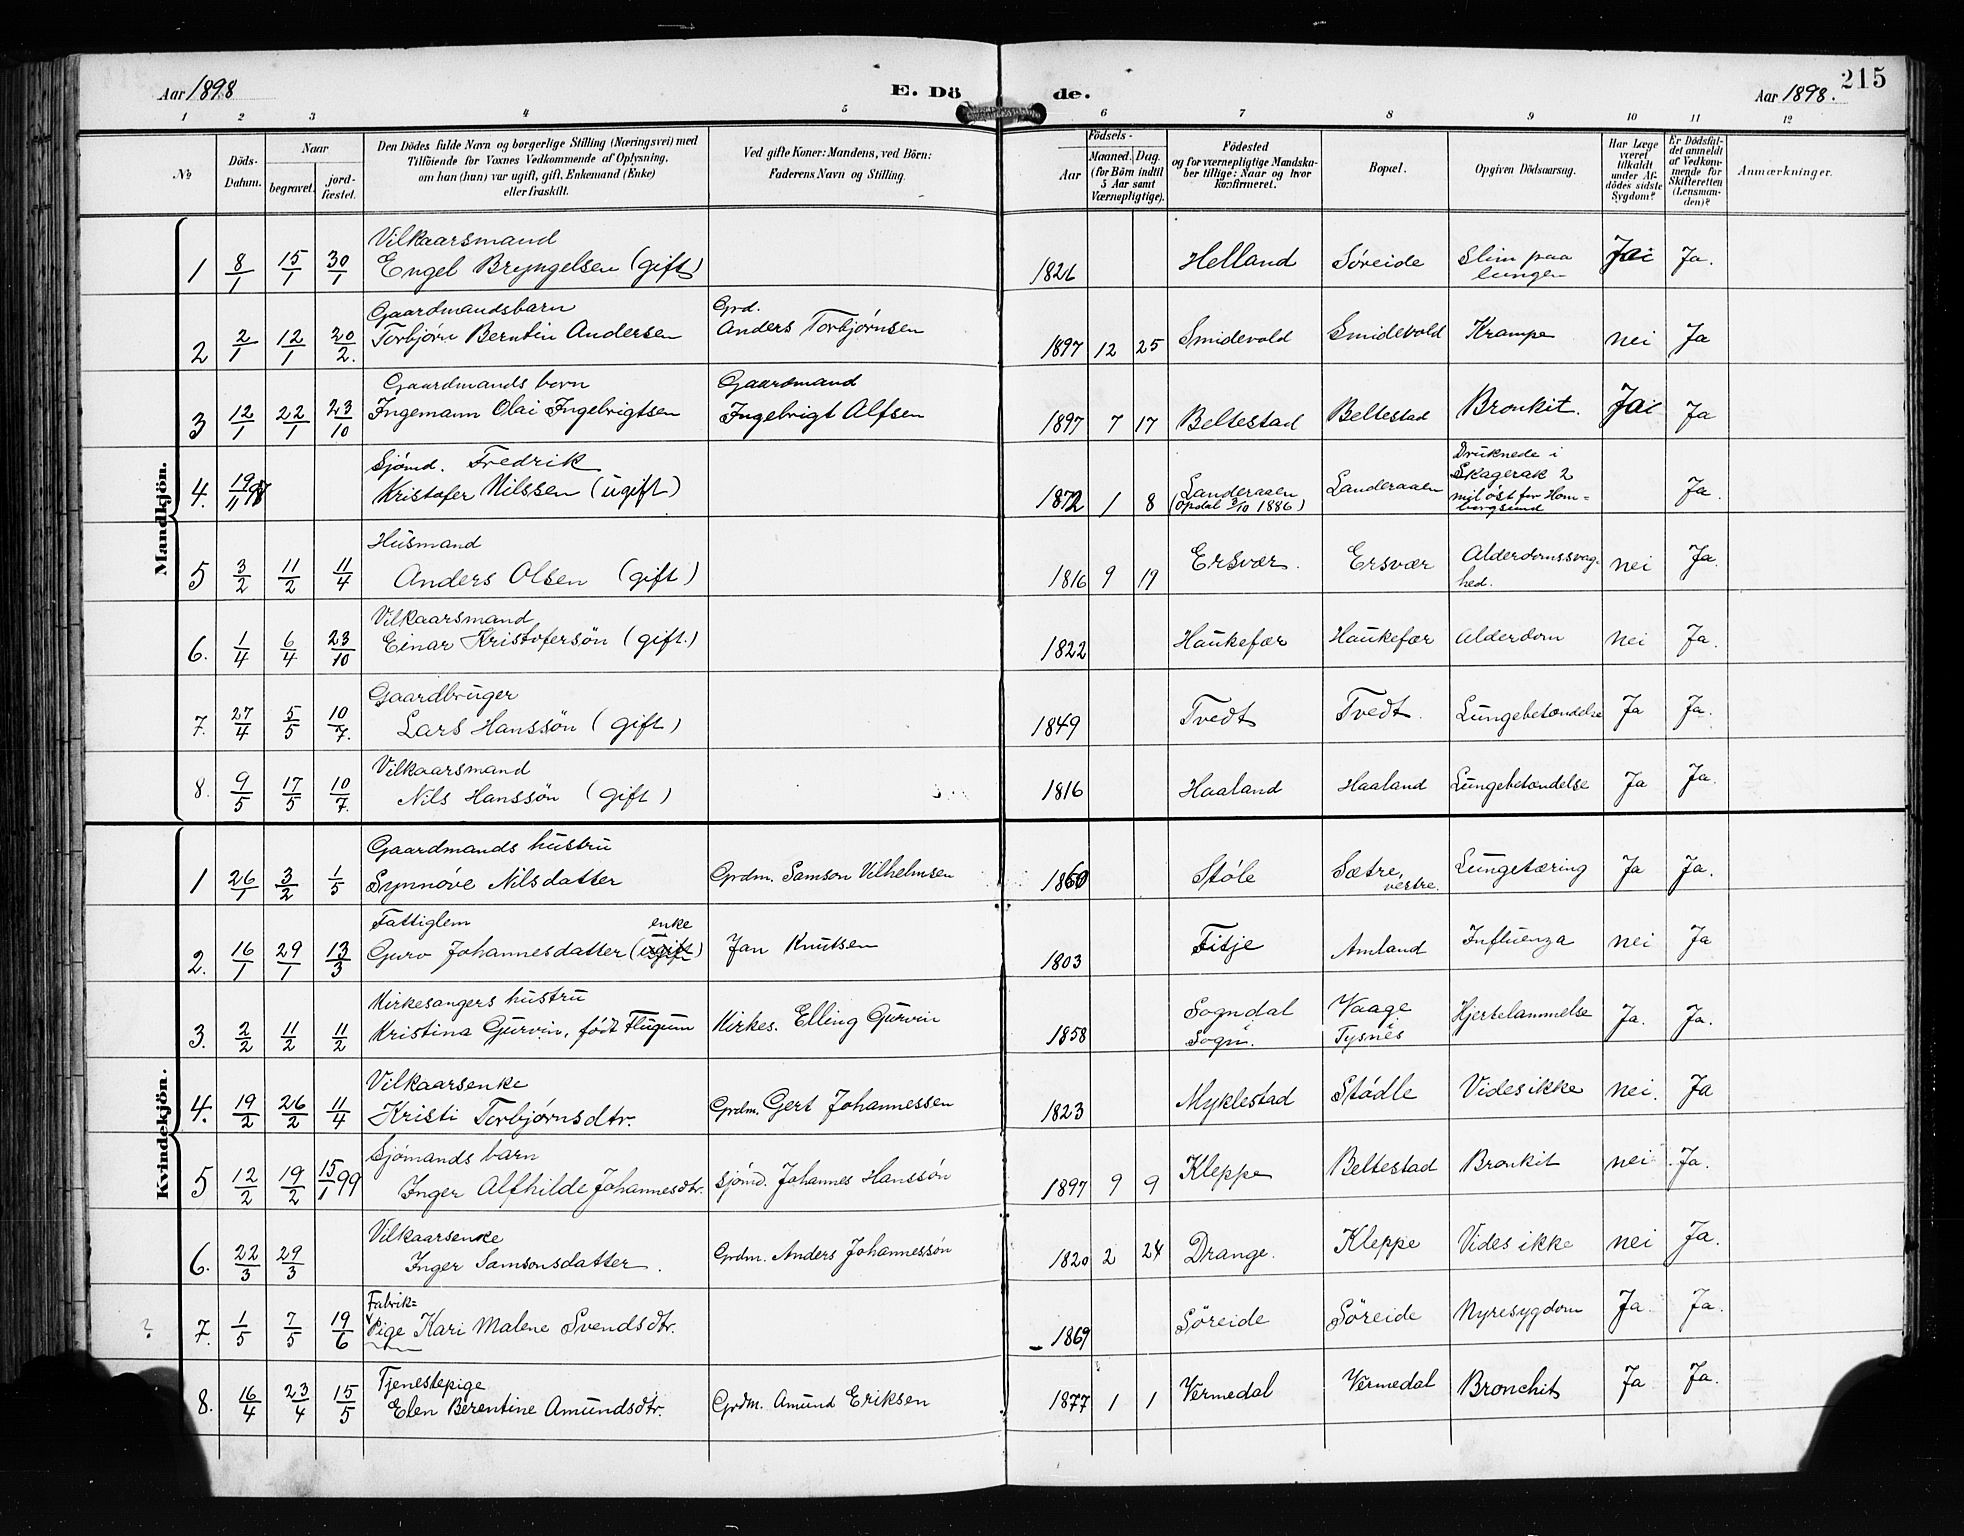 Aar 1898
E. Dö de.
Aar 1898.
215
1 2 3 4 5 6 7 8 9 10 11 12
No
Döds-Datum.
Naar
begravet.
jord-fæstet.
Den Dödes fulde Navn og borgerlige Stilling (Næringsvei) med
Tilföiende for Voxnes Vedkommende af Oplysning,
om han (hun) var ugift, gift, Enkemand (Enke)
eller fraskilt.
Ved gifte Koner: Mandens, ved Börn:
Faderens Navn og Stilling.
Födsels-
Aar
Maaned. Dag.
(for Börn indtil
5 Aar samt
Værnepligtige).
Födested
og for værnepligtige Mandska-
ber tillige: Naar og hvor
konfirmeret.
Bopæl.
Opgiven Dödsaarsag.
Har Læge
været
tilkaldt
under Af-
dödes sidste
Sygdom?
Er Dödsfal-
det anmeldt
af Vedkom-
mende for
Skifteretten
(Lensman-
den)?
Anmærkninger.
Mandkjön.
Vilkaarsmand
1 8/1 15/1 30/1 Engel Bryngelsen (gift) 1826 Helland Søreide Slim paa lungen Ja Ja.
Gaardmandsbarn Grd.
2 2/1 12/1 20/2. Torbjørn Berntin Andersen Anders Torbjørnsen 1897 12 25 Smidevold Smidevold Krampe nei Ja
Gaardmands børn Gaardmand
3 12/1 22/1 23/10 Ingemann Olai Ingebrigtsen Ingebrigt Alfsen 1897 7 17 Beltestad Beltestad Bronkit. Ja Ja
Sjømd. Fredrik
4. 19/11 97 Kristofer Nilssen (ugift) 1872 1 8 Landeraaen (Opdal 3/10 1886) Landeraaen Druknede i Skagerak 2 mil øst for Hom=borgsund Ja.
Husmand
5 3/2 11/2 11/4 Anders Olsen (gift) 1816 9 19 Ersvær. Ersvær Alderdomssvag-hed. nei Ja.
Vilkaarsmand
6. 1/4 6/4 23/10 Einar Kristofersøn (gift.) 1822 Haukefær Haukefær Alderdom nei Ja.
Gaardbruger
7. 27/4 5/5 10/7. Lars Hanssøn (gift) 1849 Tvedt Tvedt. Lungebetændelse Ja Ja.
Vilkaarsmand
8. 9/5 17/5 10/7. Nils Hanssøn (gift) 1816 Haaland Haaland Lungebetændelse Ja Ja.
Kvindekjön.
Gaardmands hustru
1 26/1 3/2 1/5 Synnøve Nilsdatter Grdm. Samson Vilhelmsen 1860 Støle Sætre, vestre. Lungetæring Ja Ja.
Fattiglem enke
2. 16/1 29/1 13/3 Guro Johannesdatter (ugift) Jan Knutsen 1803 Fitje Amland Influenza nei Ja
Kirkesangers hustru
3. 2/2 11/2 11/2 Kristina Gurvin, født Flugum Kirkes. Elling Gurvin 1858 Sogndal Sogn. Vaage Tysnes Hjertelammelse Ja. Ja.
Vilkaarsenke
4. 19/2 26/2 11/4 Kristi Torbjørnsdtr. Grdm. Gert Johannessen 1823 Myklestad Stødle Vides ikke nei. Ja
Sjømands barn
5 12/2 19/2 15/1 99 Inger Alfhilde Johannesdtr. Sjømd. Johannes Hanssøn 1897 9 9 Kleppe Beltestad Bronkit nei Ja.
Vilkaarsenke
6. 22/3 29/3 Inger Samsonsdatter. Grdm. Anders Johannessøn 1820 2 24 Drange. Kleppe Vides ikke nei Ja.
Fabrik=
? 7. 1/5 7/5 19/6 Pige Kari Malene Svendsdtr. 1869 Søreide Søreide Nyresygdom Ja Ja.
Tjenestepige
8. 16/4 23/4 15/5 Elen Berentine Amundsdtr. Grdm. Amund Eriksen 1877 1 1 Vermedal Vermedal Bronchit Ja Ja.